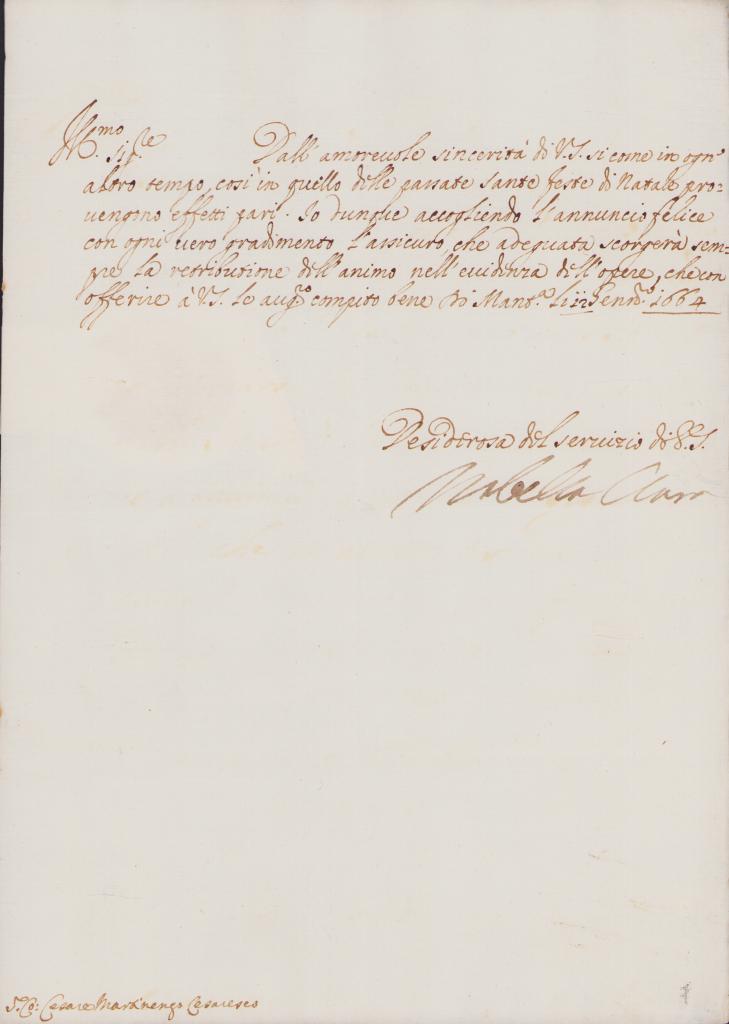 Ill.mo Sig.re Dall' amoreuole sincerità di V.S. si come in ogn'
altro tempo, così in quello delle passate sante feste di Natale pro=
uengono effetti pari. Io dunque accogliendo l'annuncio felice
con ogni uero gradimento l'assicuro, che adeguata scorgerà sem=
pre la retributione dell'animo nell'euidenza dell'opere, che con
offerire à V.S. le aug.o compito bene Di Mant.a li 12 Genn.o 1664
Desiderosa del seruizio di V.S.
Isabella Clara
S. Co: Cesare Martinengo Cesaresco